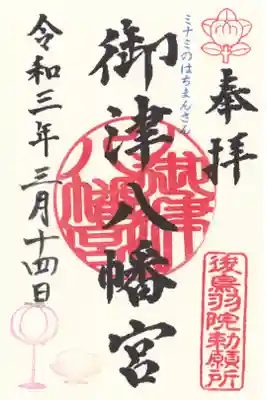 奉拝
ミナミのはちまんさん
御津八幡宮
令和三年三月十四日
御津八幡宮
後鳥羽院勅願所